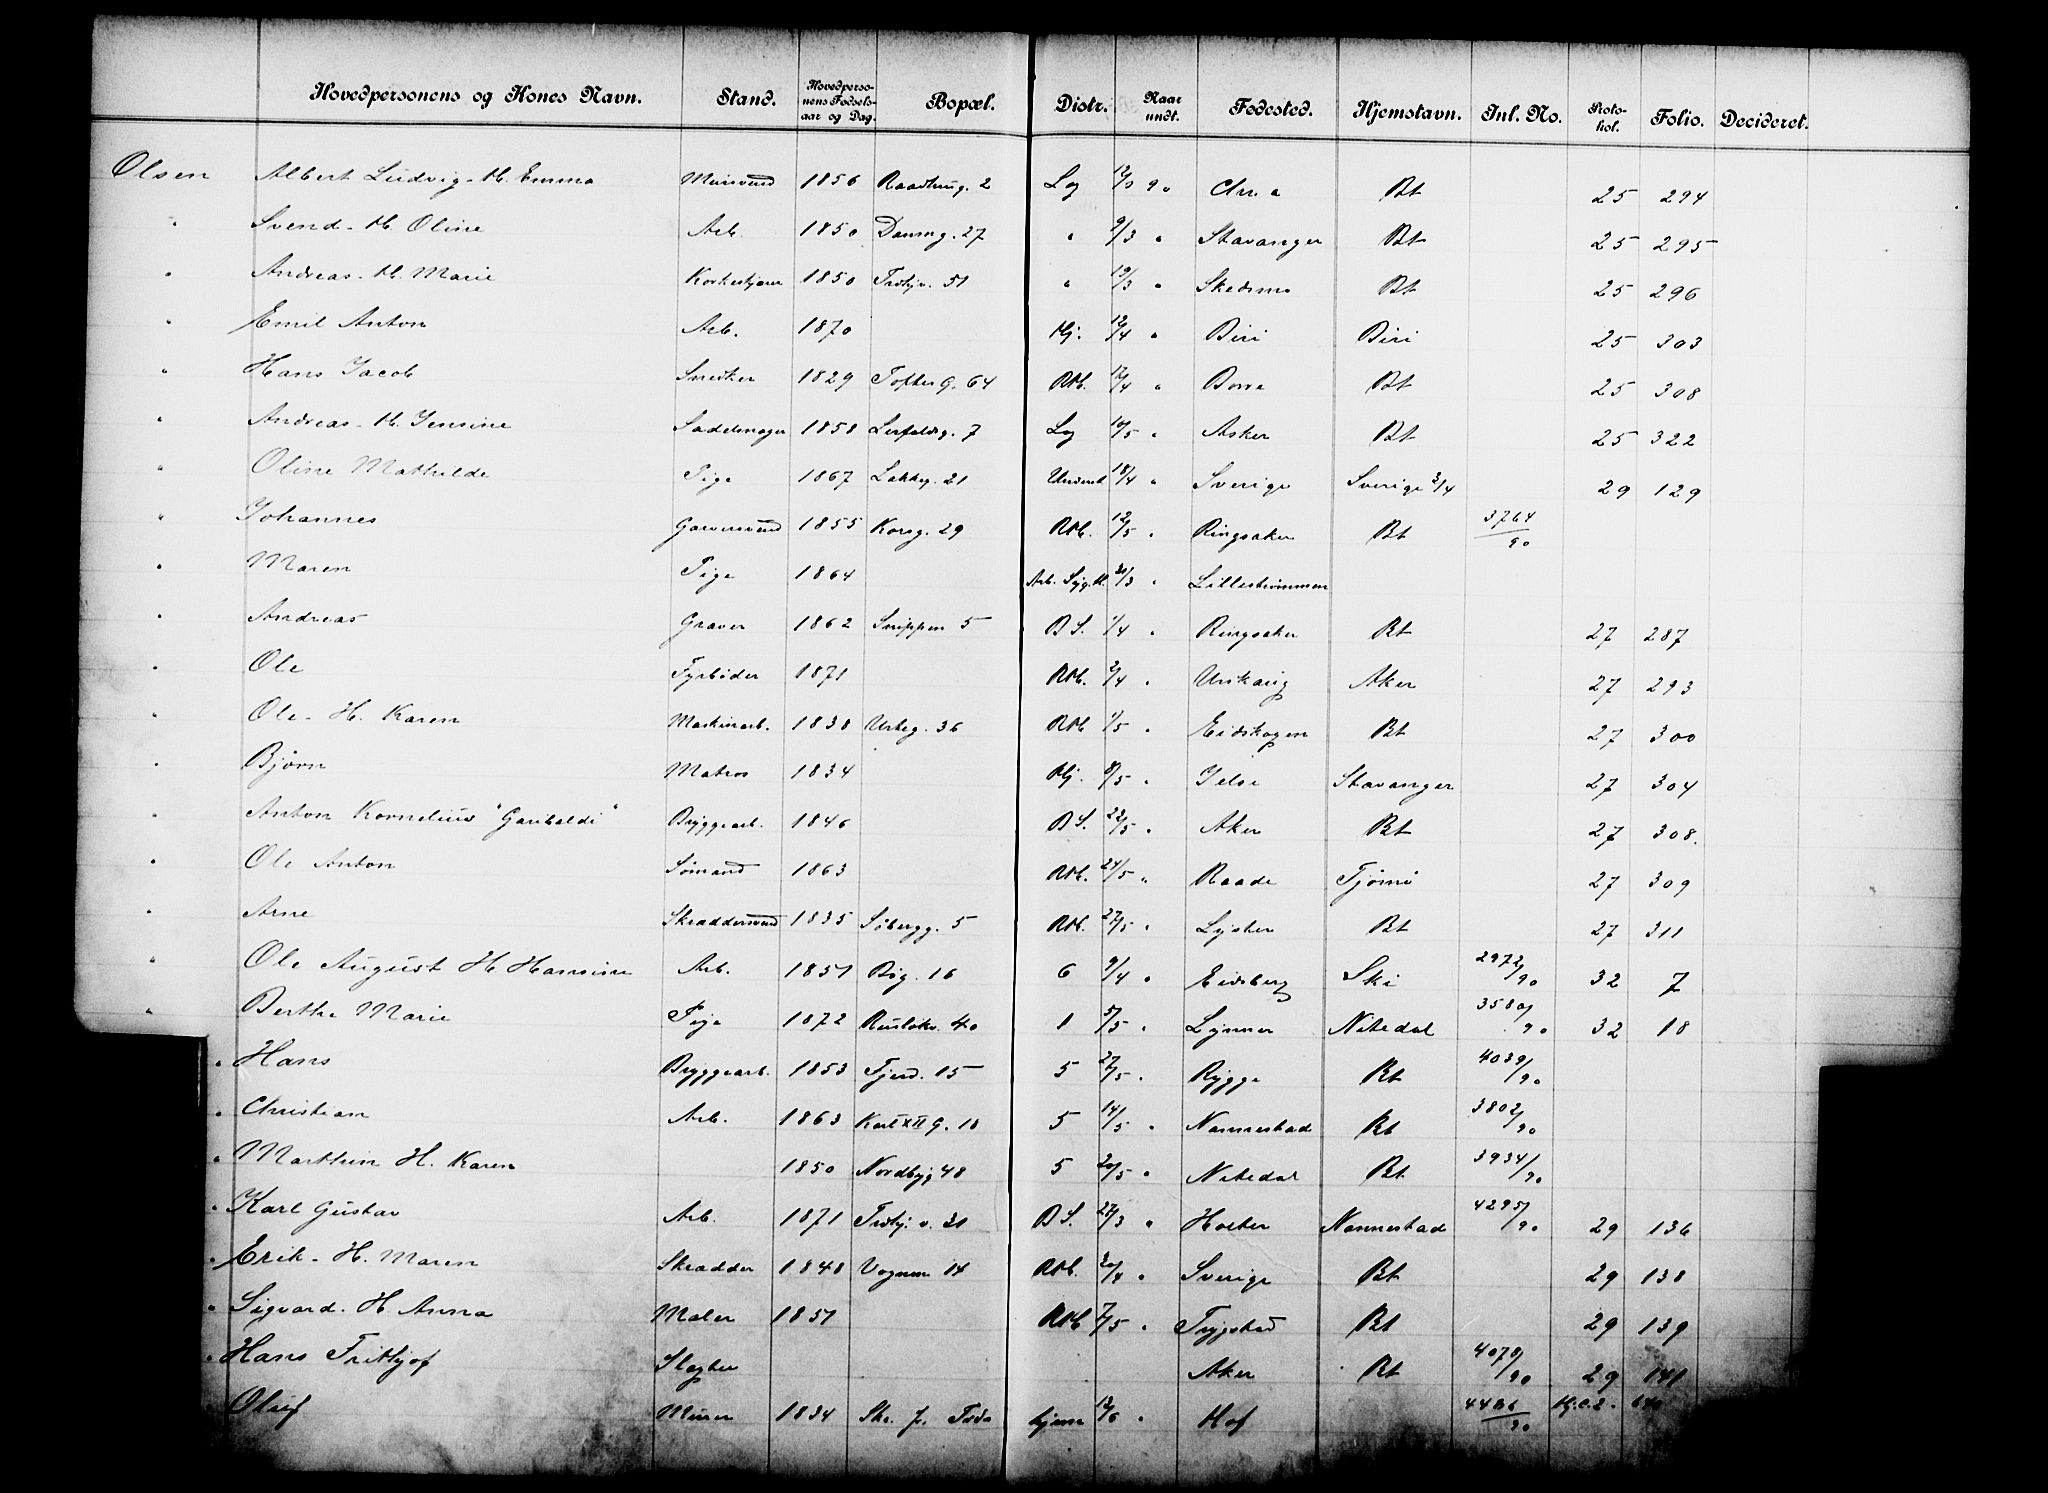 Hovedpersonens og Kones Navn. Stand. Hovedpersonens Fødselsaar og Dag. Bopæl. Distr. Naar undt. Fødested. Hjemstavn. Inl. No. Protokol. Folio. Decideret.
Olsen Albert Ludvig - H. Emma Mursvend 1856 Raadhusg. 2 Lg 12/3 90 Chr.a Bt 25 294
" Svend - H. Oline Arb. 1850 Damsg. 27 " 9/3 " Stavanger Bt 25 295
" Andreas - H. Marie 1850 Trothjv. 51 " 19/3 " Skedsmo Bt 25 296
" Emil Anton Arb. 1870 Hj. 12/4 " Biri Biri 25 303
" Hans Jacob Snedker 1829 Tofter G. 64 RH. 12/4 " Borre Bt 25 308
" Andreas - H. Jensine Sadelmager 1858 Lerfaldsg. 7 Lg 10/5 " Asker Bt 25 322
" Oline Mathilde Pige 1867 Lakkeg. 21 18/4 " Sverige Sverige 3/4 29 129
" Johannes Garversvend 1855 Korsg. 29 RH. 12/5 " Ringsaker Bt 3764/90
" Maren Pige 1864 Arb. Syg. H. 31/3 " Lillestrømmen
" Andreas Graver 1862 Snippen 5 B S. 1/4 " Ringsaker Bt 27 287
" Ole Fyrbøder 1871 RH. 2/4 " Urskoug Aker 27 293
" Ole - H. Karen Maskinarb. 1838 Urteg. 36 RH 1/5 " Eidskogen Bt 27 300
" Bjørn Matros 1834 Hj. 8/5 " Jelse Stavanger 27 304
" Anton Kornelius "Garibaldi" Bryggearb. 1846 B S. 22/5 " Aker Bt 27 308.
" Ole Anton Sømand 1863 RH. 24/5 " Raade Tjømø 27 309
" Arne Skræddersvend 1835 Søbergg. 5 RH. 27/5 " Lyster Bt 27 311
" Ole August H. Hansine Arb. 1851 Bøg. 16 6 9/4 " Eidsberg Ski 2972/90 32 7
" Berthe Marie Pige 1872 Ruseløkv. 40 1 5/5 " Nitedal 3580/90 32 18
" Hans Bryggearb. 1853 Fjerd. 15 5 27/5 " Rygge Bt 4039/90
" Christian Arb. 1863 Karl XII G. 18 5 14/5 " Nannestad Bt 3802/90
" Marthin H. Karen 1850 Nordbyg 48 5 20/5 " Nitedal Bt 3934/90
" Karl Gustav Arb. 1871 Trothj. v. 31 B S. 28/3 " Holter Nannestad 4295/90 29 136
" Erik - H. Maren Skrædder 1848 Vognm 14 RH. 20/4 " Sverige Bt 29 138
" Sigvard - H. Anna Maler 1851 RH 7/5 " Trygstad Bt 29 139
" Hans Frithjof Slagter Aker Bt 4070/90 29 141
" Oluf Murer 1834 Hjem 12/6 " Hof